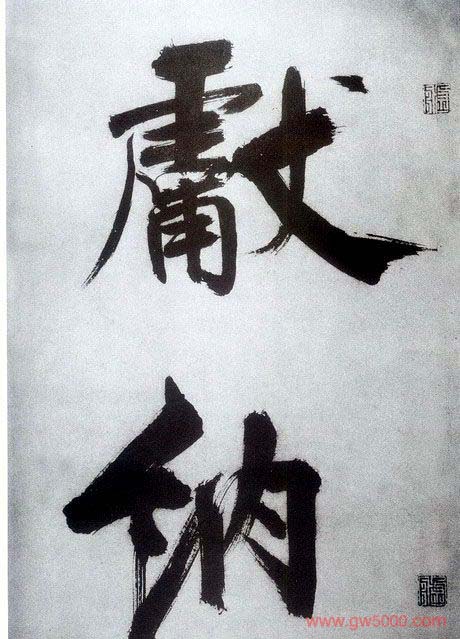 獻
納
www.gw5000.com